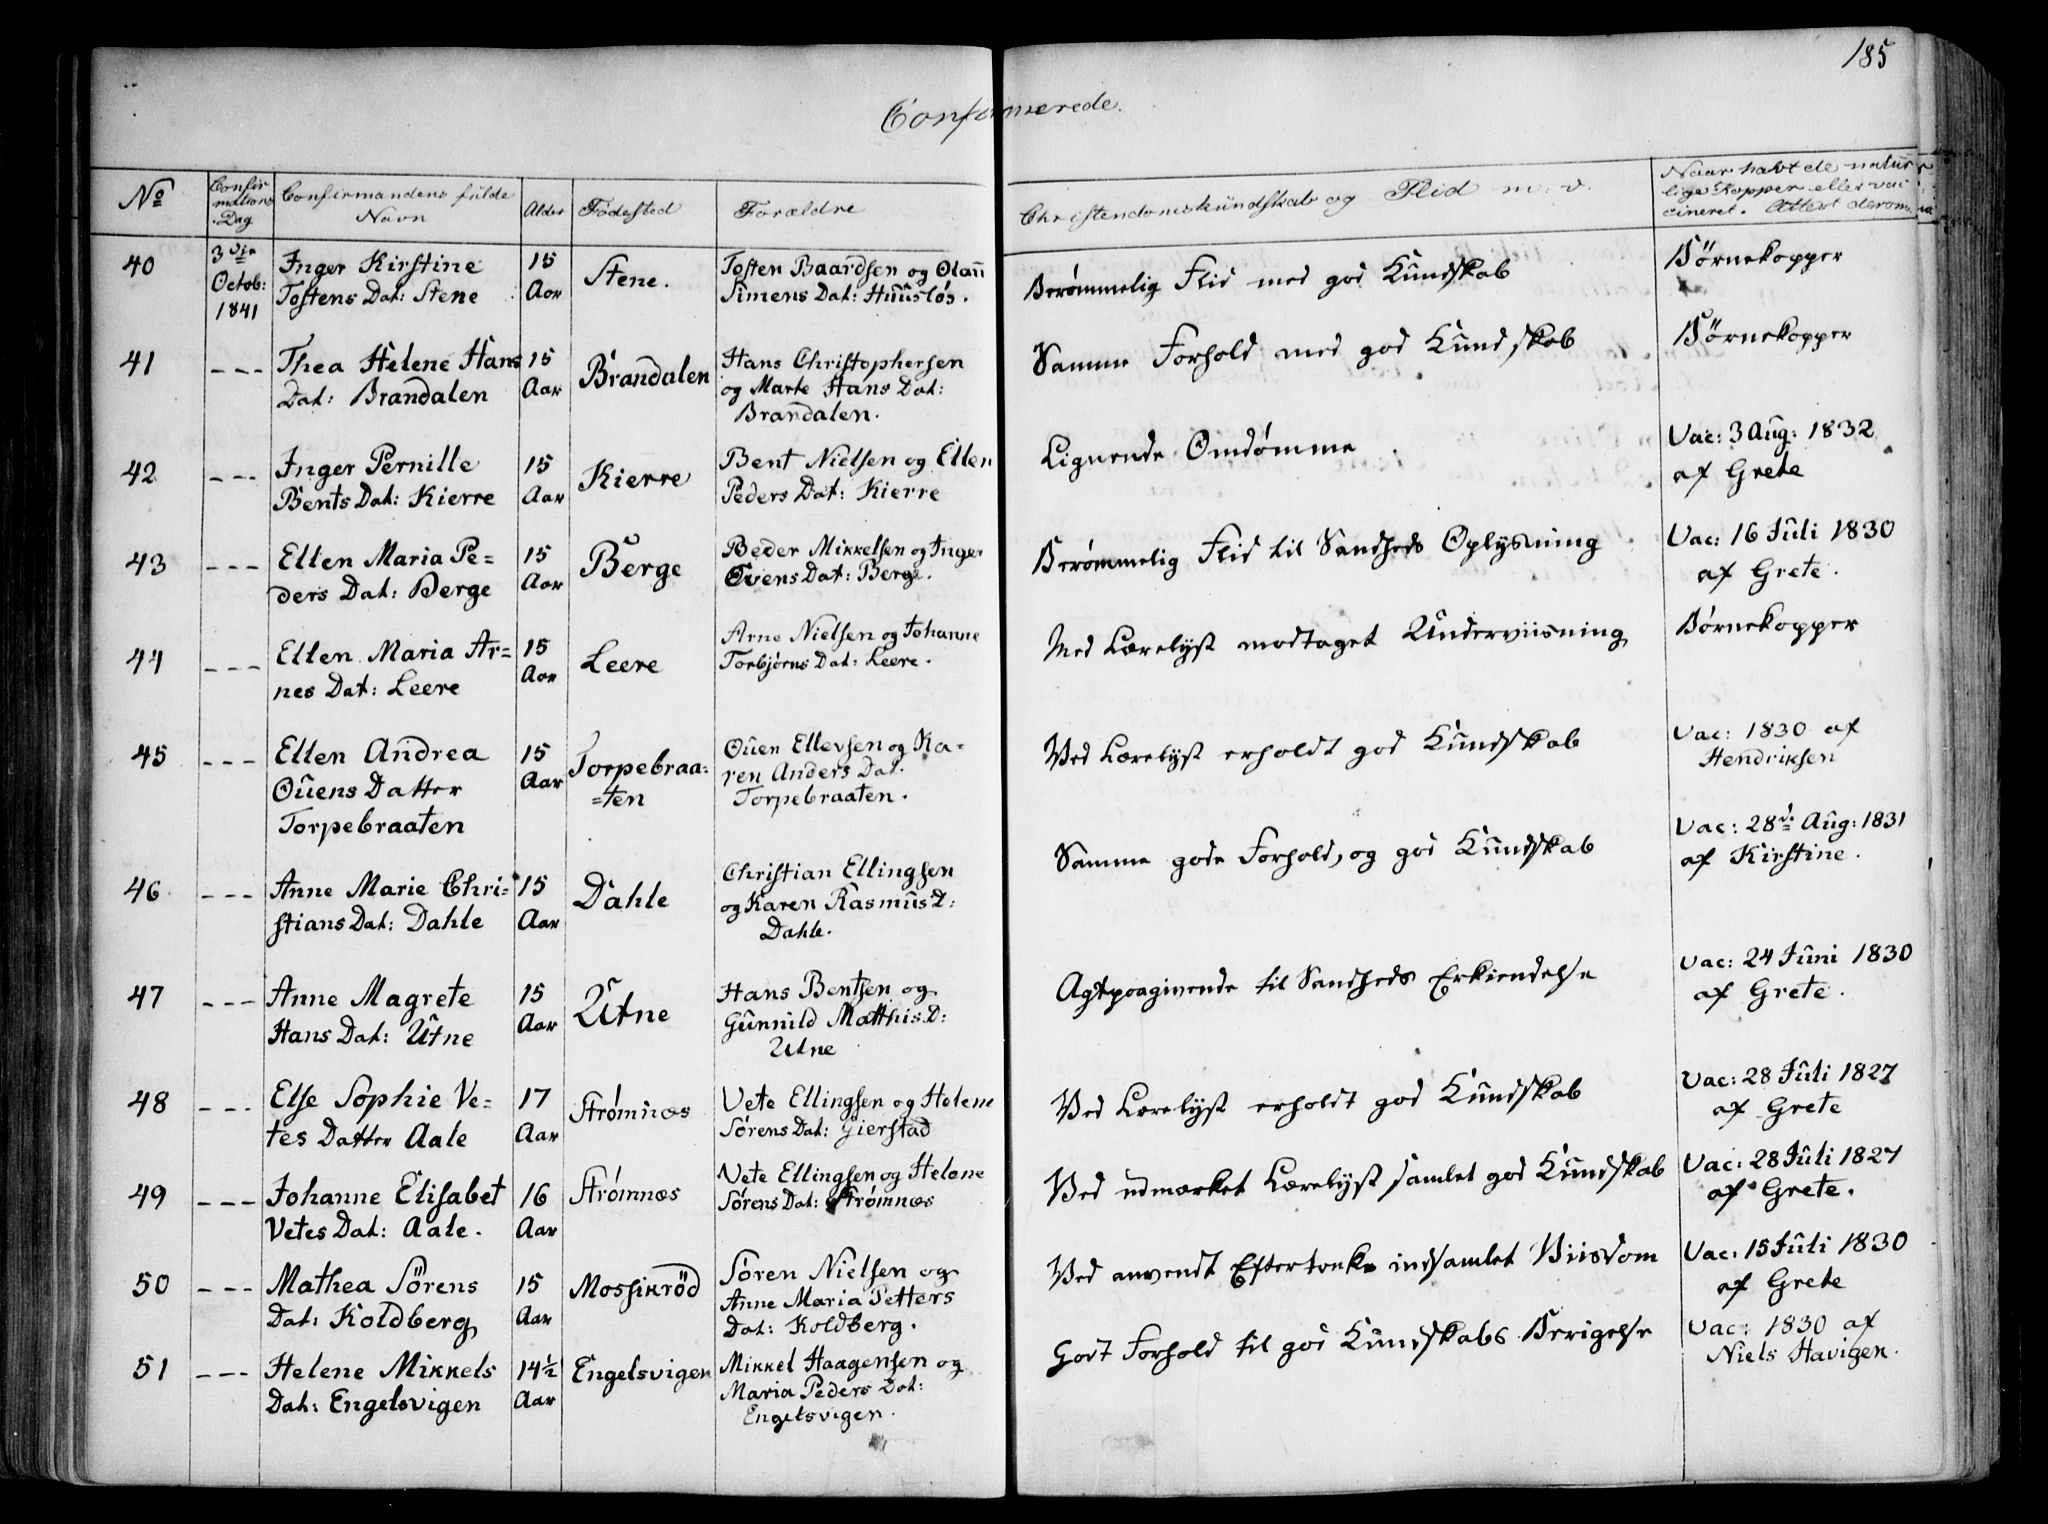 185
Confirmerede.
No
Confirmations Dag
Confirmandens fulde Navn
Alder
Födested
Forældre
Christendomskundskab og Flid m. v.
Naar havt de naturlige Kopper eller vaccineret. Attest derom
40
3die Octob: 1841
Inger Kirstine
Tostens Dat: Stene
15 Aar
Stene.
Tosten Baardsen og Olau
Simens Dat: Huusløs.
Berømmelig Flid med god Kundskab
Børnekopper
41
---
Thea Helene Hans
Dat: Brandalen
15 Aar
Brandalen
Hans Christophersen
og Marte Hans Dat:
Brandalen.
Samme Forhold med god Kundskab
Børnekopper
42
---
Inger Pernille
Bents Dat: Kierre
15 Aar
Kierre
Bent Nielsen og Ellen
Peders Dat: Kierre
Lignende Omdømme
Vac: 3 Aug: 1832
af Grete
43
---
Ellen Maria Pe=
ders Dat: Berge
15 Aar
Berge
Beder Mikkelsen og Inger
Svens Dat: Berge.
Berømmelig Flid til Sandheds Oplysning
Vac: 16 Juli 1830
af Grete.
44
---
Ellen Maria Ar=
nes Dat: Leere
15 Aar
Leere
Arne Nielsen og Johanne
Torbjørns Dat: Leere.
Med Lærelyst modtaget Underviisning
Børnekopper
45
---
Ellen Andrea
Ouens Datter
Torpebraaten
15 Aar
Torpebraa=
=ten
Ouen Ellevsen og Ka=
ren Anders Dat.
Torpebraaten.
Ved Lærelyst erholdt god Kundskab
Vac: 1830 af
Hendriksen
46
---
Anne Marie Chri=
stians Dat: Dahle
15 Aar
Dahle
Christian Ellingsen
og Karen Rasmus D:
Dahle.
Samme gode Forhold, og god Kundskab
Vac: 28de Aug: 1831
af Kirstine.
47
---
Anne Magrete
Hans Dat: Utne
15 Aar
Utne
Hans Bentsen og
Gunnild Matthis D:
Utne
Agtpaagivende til Sandheds Erkiendelse
Vac: 24 Juni 1830
af Grete.
48
---
Else Sophie Ve=
tes Datter Aale
17 Aar
Strømnæs
Vete Ellingsen og Helene
Sörens Dat: Gierstad
Ved Lærelyst erholdt god Kundskab
Vac: 28 Juli 1827
af Grete
49
---
Johanne Elisabet
Vetes Dat: Aale.
16 Aar
Strømnæs
Vete Ellingsen og Helene
Sørens Dat: Strømnæs
Ved udmærket Lærelyst samlet god Kundskab
Vac: 28 Juli 1827
af Grete.
50
---
Mathea Sörens
Dat: Koldberg
15 Aar
Mossikröd
Sören Nielsen og
Anne Maria Petters
Dat: Koldberg.
Ved anvendt Eftertanke indsamlet Viisdom
Vac: 15 Juli 1830
af Grete
51
---
Helene Mikkels
Dat: Engelsvigen
14½ Aar
Engelsvigen
Mikkel Haagensen og
Maria Peders Dat:
Engelsvigen.
Godt Forhold til god Kundskabs Berigelse
Vac: 1830 af
Niels Havigen.